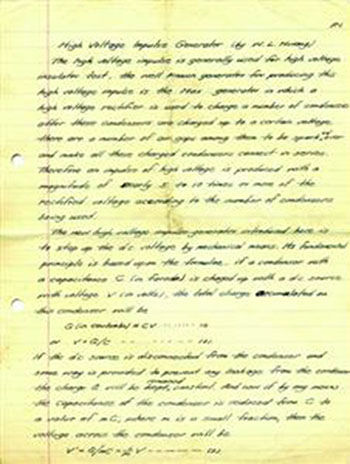 P-1
High Voltage Impulse Generator (by W. L. Hwang)
The high voltage impulse is generally used for high voltage
insulator test. The well known generator for producing this
high voltage impulse is the Max generator in which a
high voltage rectifier is used to charge a number of condensers
after these condensers are charged up to a certain voltage,
there are a number of air gaps among them to be spark over
and make all these charged condensers connect in series.
Therefore an impulse of high voltage is produced with a
magnitude of nearly 5 to 10 times or more of the
rectified voltage according to the number of condensers
being used.
The new high voltage impulse generator introduced here is
to step up the d.c voltage by mechanical means. Its fundamental
principle is based upon the formulae. If a condenser with
a capacitance C (in farads) is charged up with a d.c source
with voltage V (in volts), the total charge accumulated on
this condenser will be
Q (in coulombs) = CV (1)
or V = Q/C (2)
If the d.c source is disconnected from the condenser and
some way is provided to prevent any leakage from the condenser
the charge Q will be kept constant. And now if by any means
the capacitance of the condenser is reduced from C to
a value of mC, where m is a small fraction, then the
voltage across the condenser will be